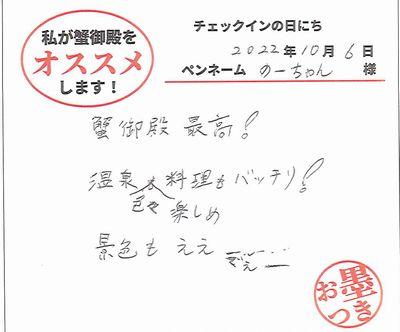 私が蟹御殿を
オススメ
します！
チェックインの日にち
2022年10月6日
ペンネーム のーちゃん 様
蟹御殿 最高！
温泉も料理もバッチリ！
色々楽しめ
景色もええ
墨
おつき